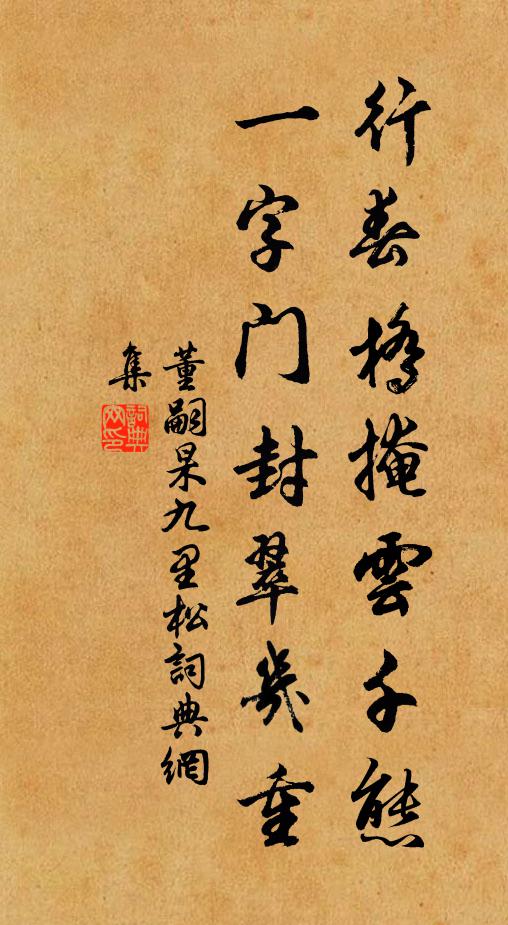 行春橋掩雲千態
一字門封翠幾重
董嗣杲九里松詞典網
集
詞典
網印